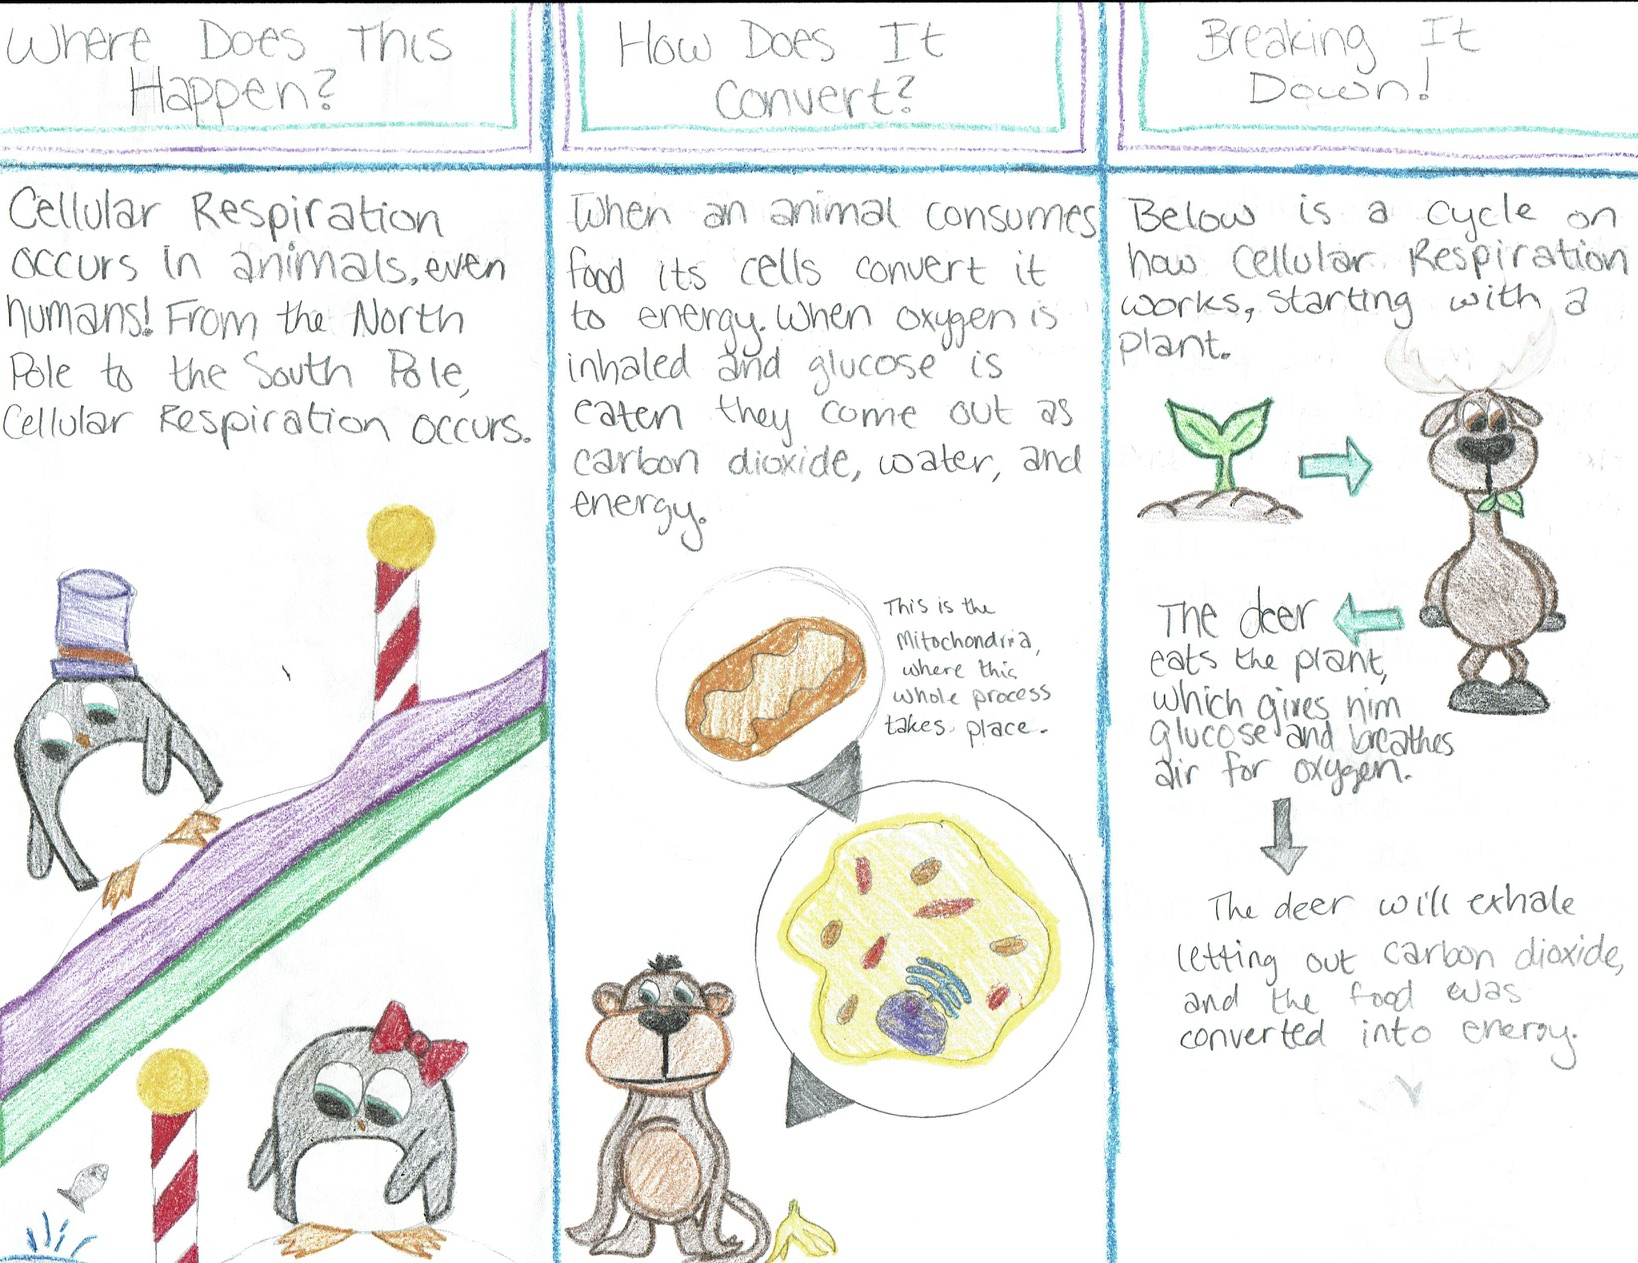 Where Does This
Happen?
Cellular Respiration
occurs in animals, even
humans! From the North
Pole to the South Pole,
Cellular Respiration occurs.
How Does It
Convert?
When an animal consumes
food its cells convert it
to energy. When oxygen is
inhaled and glucose is
eaten they come out as
carbon dioxide, water, and
energy.
This is the
Mitochondria,
where this
whole process
takes place.
Breaking It
Down!
Below is a cycle on
how Cellular Respiration
works, starting with a
plant.
The deer
eats the plant,
which gives him
glucose and breathes
air for oxygen.
The deer will exhale
letting out carbon dioxide,
and the food was
converted into energy.